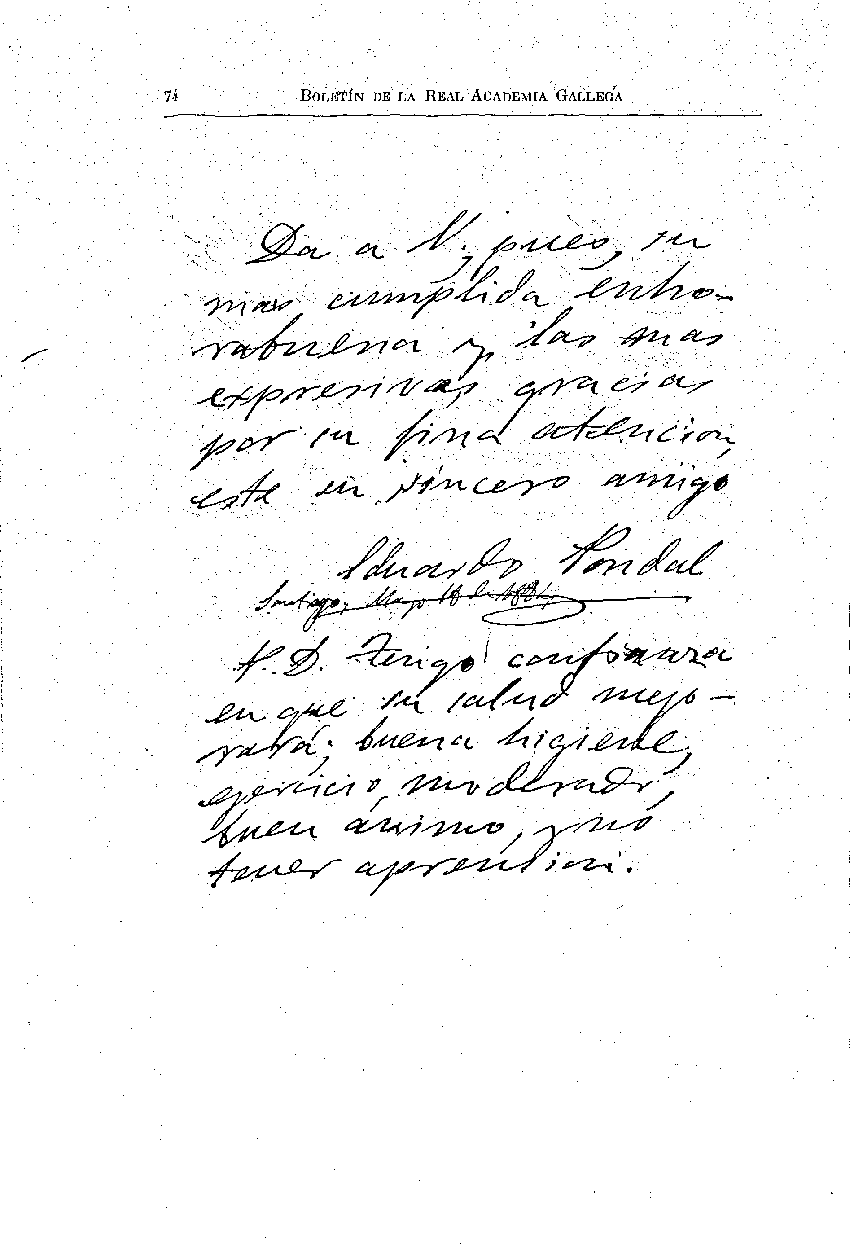 74
BOLETÍN DE LA REAL ACADEMIA GALLEGA
Da a V; pues, su
mas cumplida enho-
rabuena y las mas
expresivas gracias
por su fina atencion,
este su sincero amigo
Eduardo Pondal
Santiago, Mayo 18 de
P. D. Tengo confianza
en que su salud mejo-
rará; buena higiene,
ejercicio, moderado,
buen ánimo, y no
tener aprension.